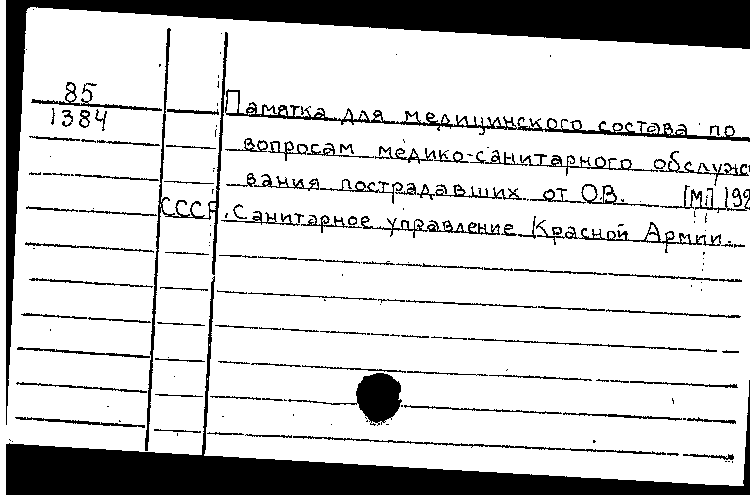 85
1384
Памятка для медицинского состава по
вопросам медико-санитарного обслуж
вания пострадавших от ОВ. [М.], 192
СССР. Санитарное управление Красной Армии.